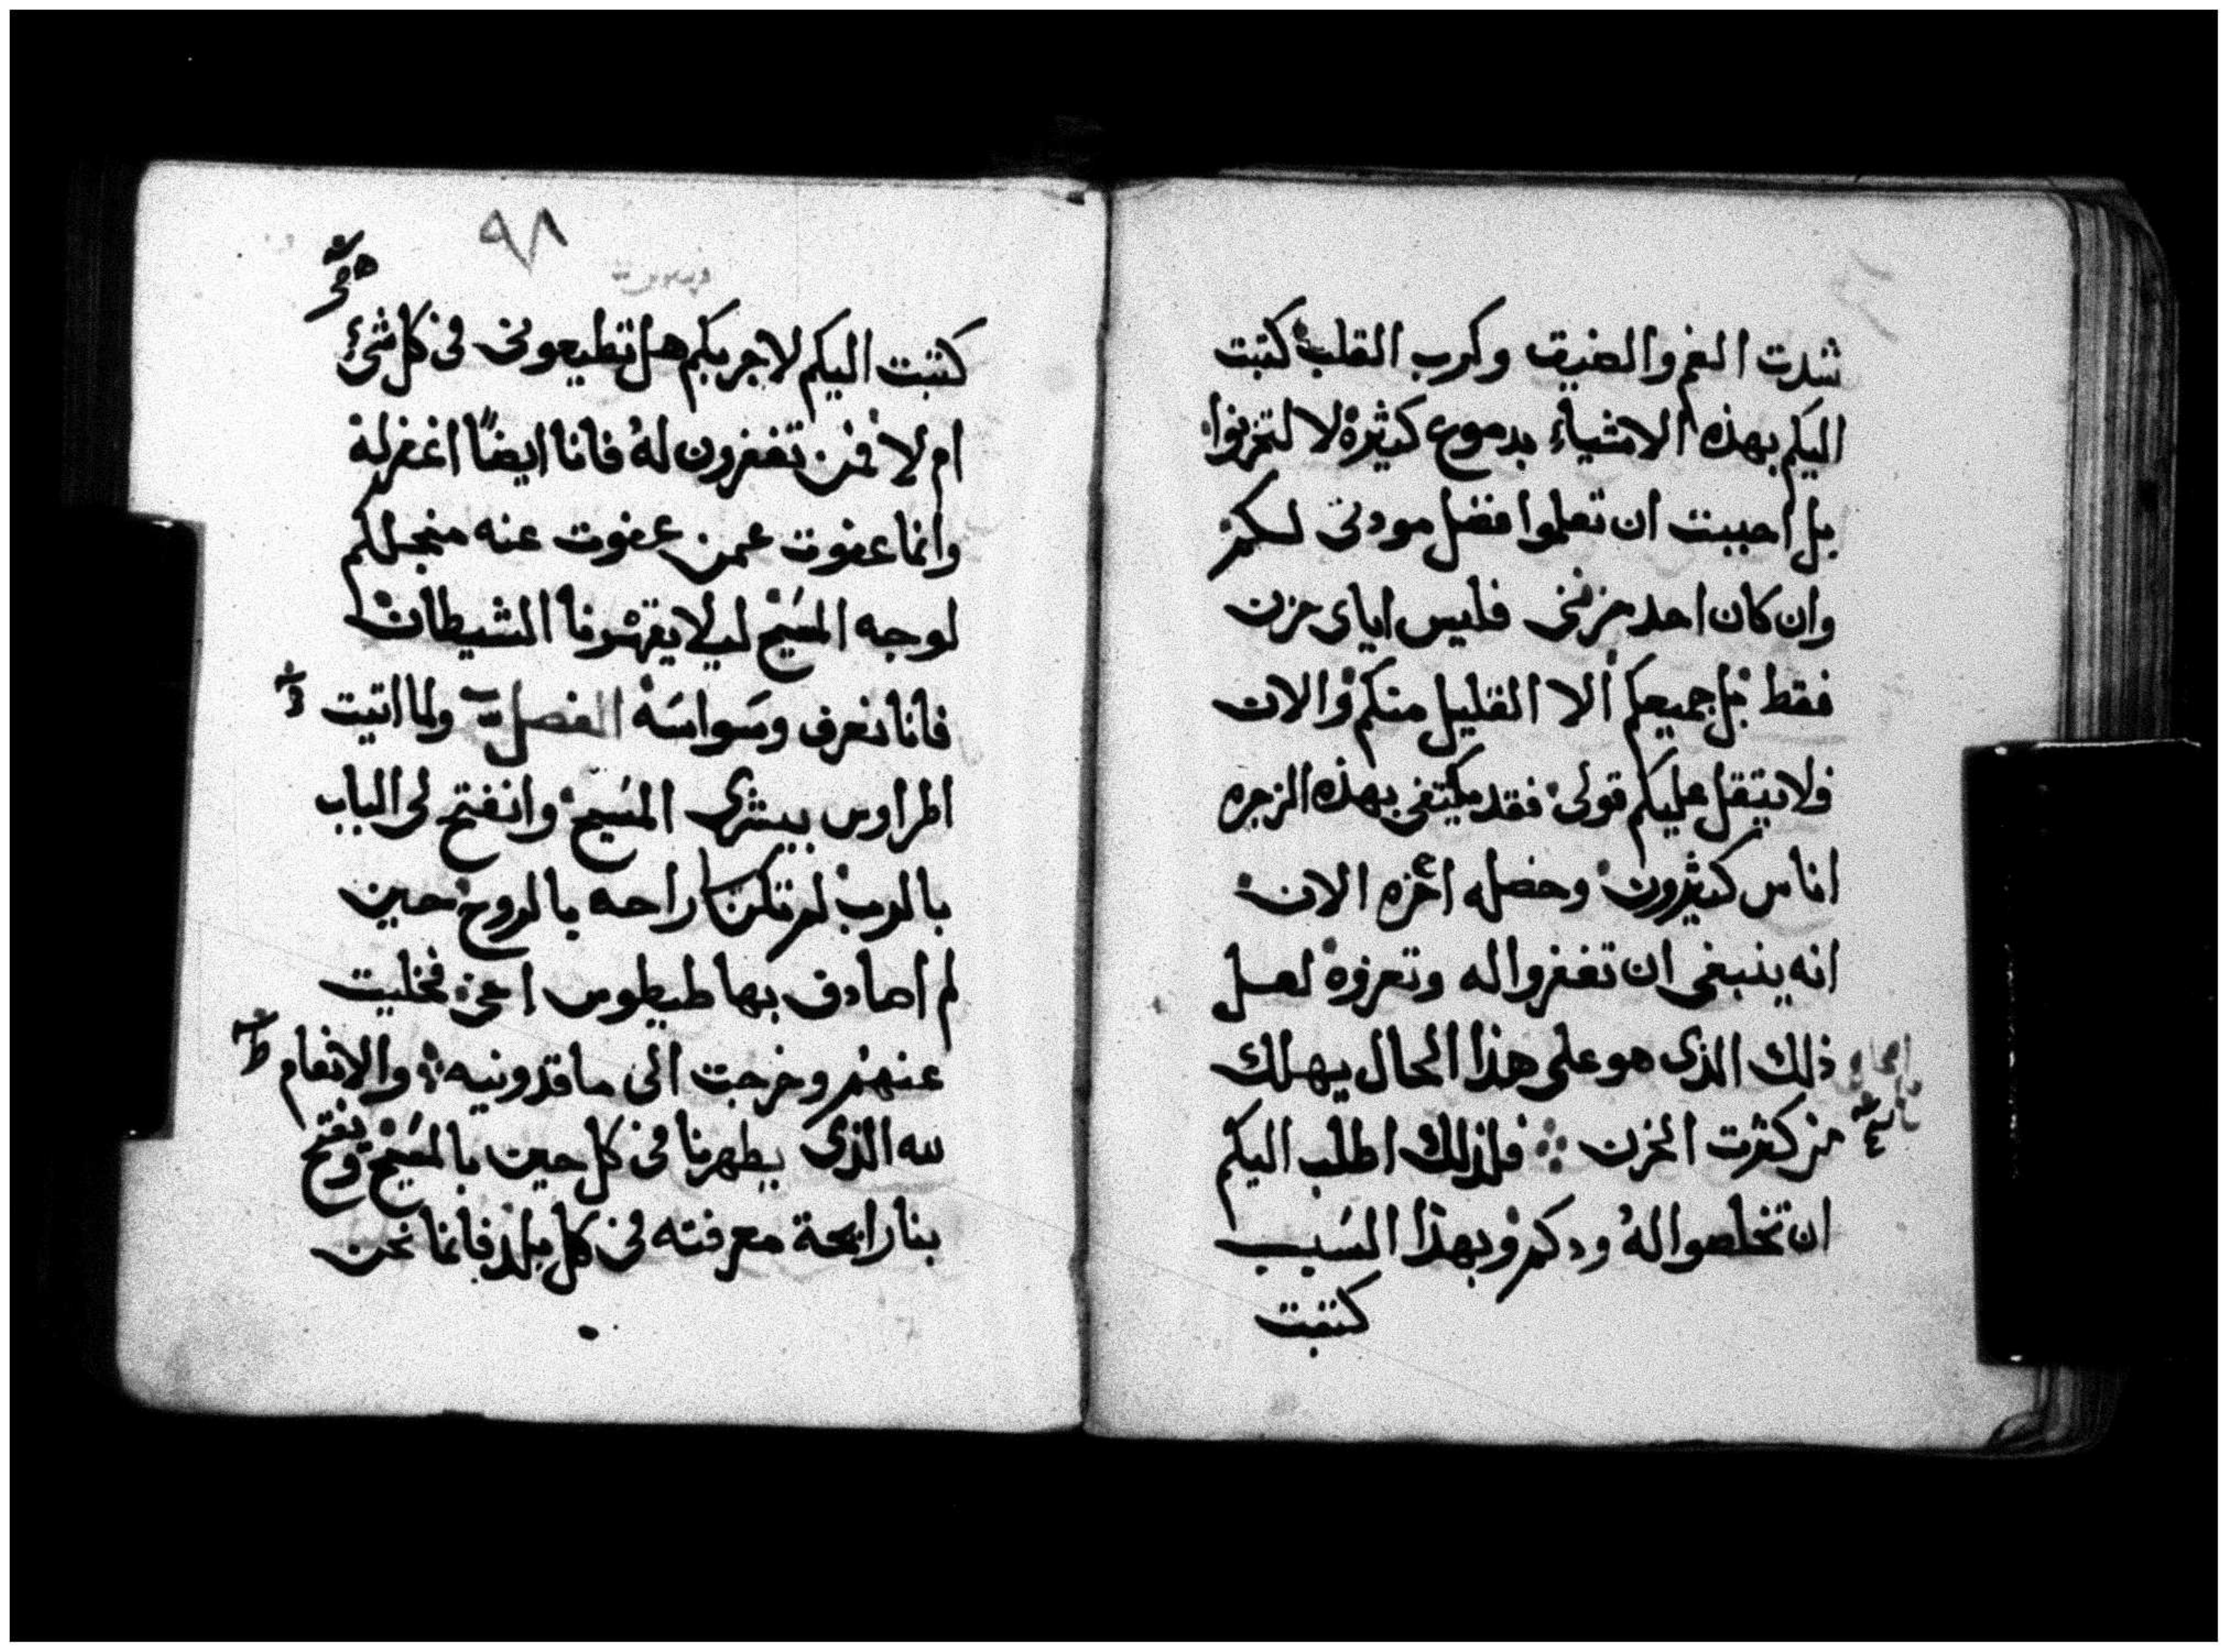 شدت الغم والضيق وكرب القلب كتبت
اليكم بهذه الاشياء بدموع كثيرة لا لتحزنوا
بل احببت ان تعلموا فضل مودتى لكم
وان كان احد حزننى فليس اياى حزن
فقط بل جميعكم الا القليل منكم والان
فلا يثقل عليكم قولى فقد يكتفى بهذه الزجره
اناس كثيرون وحضله الان
انه ينبغى ان تغفروا له وتعزوه لعل
ذلك الذى هو على هذا الحال يهلك
من كثرت الحزن فلذلك اطلب اليكم
ان تخلصوا له ودكم وبهذا السبب
كتبت
٩٨
كتبت اليكم لاجربكم هل تطيعونى فى كل شئ
ام لا فمن تغفرون له فانا ايضًا اغفر له
وانما عفوت عمن عفوت عنه منجلكم
لوجه المسيح ليلا يقهرنا الشيطان
فانا نعرف وسواسه الفصل ولما اتيت
اطراوس ببشرى المسيح وانفتح لى الباب
بالرب لم تكن راحه بالروح حين
لم اصادف بها طيطوس اخى فخليت
عنهم وخرجت الى ماقدونيه والانعام
لله الذى يطهرنا فى كل حين بالمسيح ويفتح
بنا رايحة معرفته فى كل بلد فانما نحن